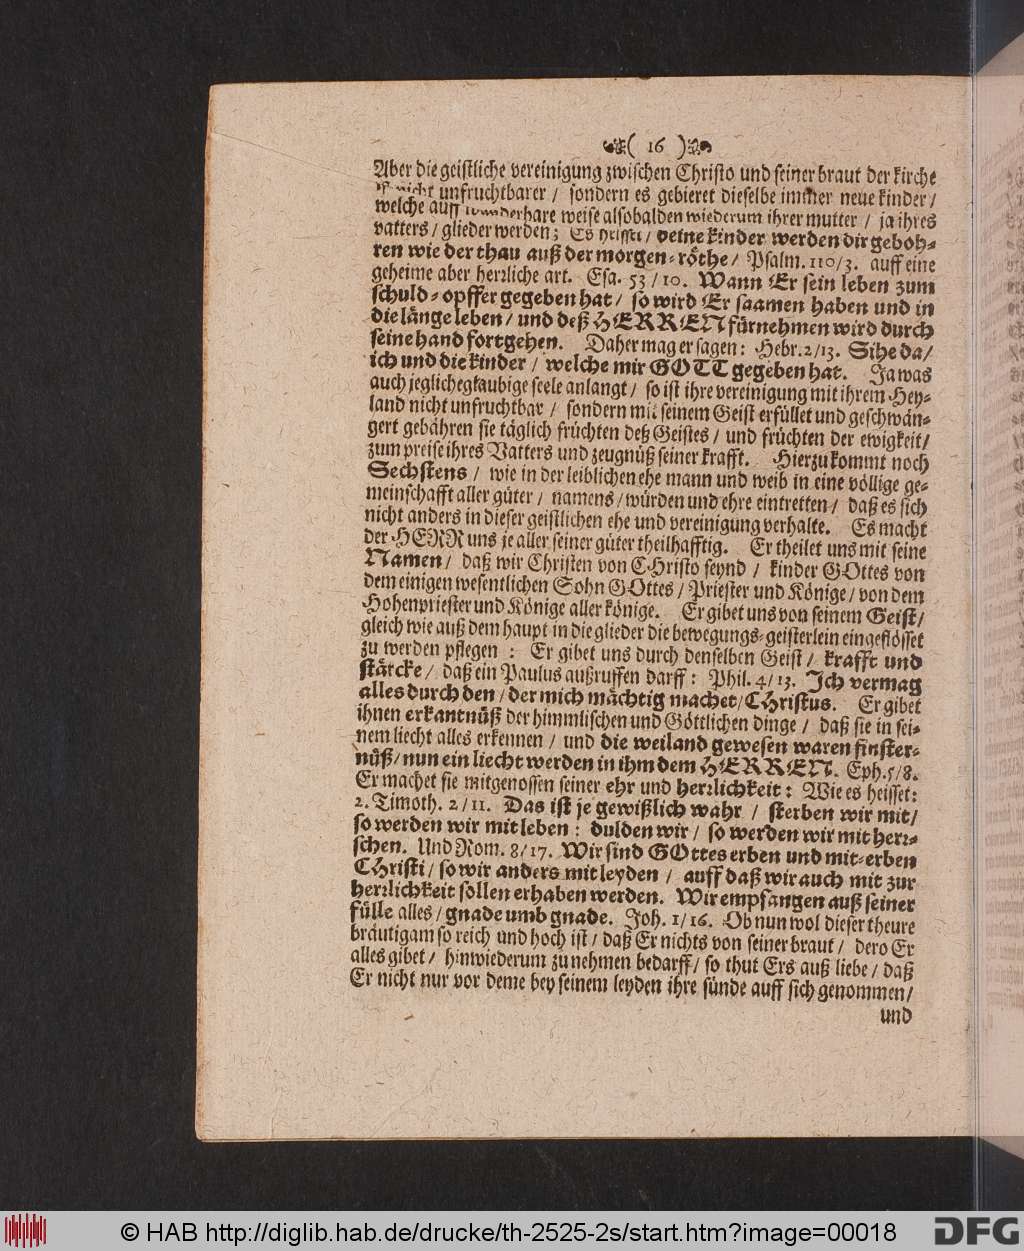 ( 16 )
Aber die geistliche vereinigung zwischen Christo und seiner braut der kirche
ist nicht unfruchtbarer / sondern es gebieret dieselbe immer neue kinder /
welche auff wunderbare weise alsobalden wiederum ihrer mutter / ja ihres
vatters / glieder werden; Es heisset / deine kinder werden dir geboh-
ren wie der thau auß der morgen-röthe / Psalm. 110/3. auff eine
geheime aber herrliche art. Esa. 53/10. Wann Er sein leben zum
schuld-opffer gegeben hat / so wird Er saamen haben und in
die länge leben / und deß HERREN fürnehmen wird durch
seine hand fortgehen. Daher mag er sagen: Hebr. 2/13. Sihe da /
ich und die kinder / welche mir GOTT gegeben hat. Ja was
auch jegliche glaubige seele anlangt / so ist ihre vereinigung mit ihrem Hey-
land nicht unfruchtbar / sondern mit seinem Geist erfüllet und geschwän-
gert gebähren sie täglich früchten deß Geistes / und früchten der ewigkeit /
zum preise ihres Vatters und zeugnüß seiner krafft. Hierzu kommt noch
Sechstens / wie in der leiblichen ehe mann und weib in eine völlige ge-
meinschafft aller güter / namens / würden und ehre eintretten / daß es sich
nicht anders in dieser geistlichen ehe und vereinigung verhalte. Es macht
der HERR uns je aller seiner güter theilhafftig. Er theilet uns mit seine
Namen / daß wir Christen von CHristo seynd / kinder GOttes von
dem einigen wesentlichen Sohn GOttes / Priester und Könige / von dem
Hohenpriester und Könige aller könige. Er gibet uns von seinem Geist /
gleich wie auß dem haupt in die glieder die bewegungs-geisterlein eingeflösset
zu werden pflegen : Er gibet uns durch denselben Geist / krafft und
stärcke / daß ein Paulus außruffen darff : Phil. 4/13. Ich vermag
alles durch den / der mich mächtig machet / CHristus. Er gibet
ihnen erkantnüß der himmlischen und Göttlichen dinge / daß sie in sei-
nem liecht alles erkennen / und die weiland gewesen waren finster-
nüß / nun ein liecht werden in ihm dem HERREN. Eph. 5/8.
Er machet sie mitgenossen seiner ehr und herrlichkeit : Wie es heisset:
2. Timoth. 2/11. Das ist je gewißlich wahr / sterben wir mit /
so werden wir mit leben : dulden wir / so werden wir mit herr-
schen. Und Rom. 8/17. Wir sind GOttes erben und mit-erben
CHristi / so wir anders mit leyden / auff daß wir auch mit zur
herrlichkeit sollen erhaben werden. Wir empfangen auß seiner
fülle alles / gnade umb gnade. Joh. 1/16. Ob nun wol dieser theure
bräutigam so reich und hoch ist / daß Er nichts von seiner braut / dero Er
alles gibet / hinwiederum zu nehmen bedarff / so thut Ers auß liebe / daß
Er nicht nur vor deme bey seinem leyden ihre sünde auff sich genommen /
und
© HAB http://diglib.hab.de/drucke/th-2525-2s/start.htm?image=00018
DFG